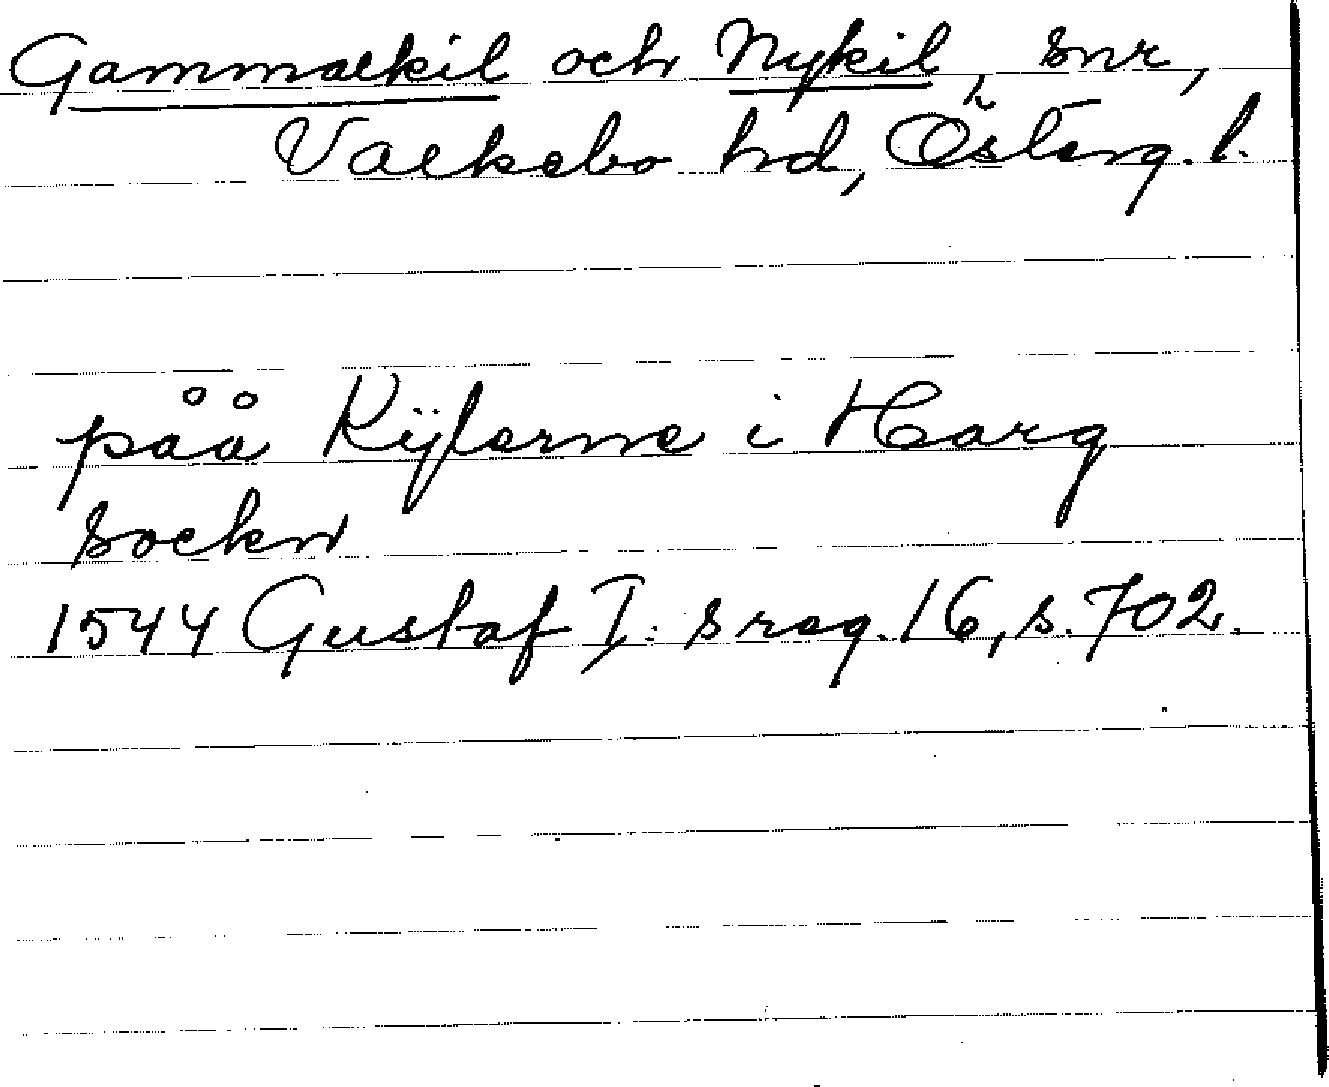 Gammalkil och Nykil, snr,
Valkebo hd, Österg. l.
påå Kÿlerne i Harg
sockn
1544 Gustaf I: s reg. 16, s. 702.